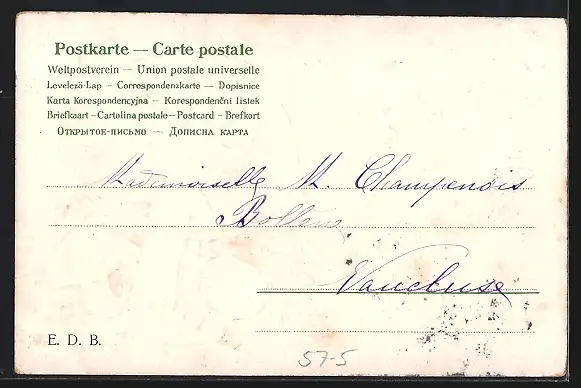 Postkarte — Carte postale
Weltpostverein — Union postale universelle
Levelezö-Lap — Correspondenzkarte — Dopisnice
Karta Korespondencyjna — Korespondenčni listek
Briefkaart – Cartolina postale – Postcard – Brefkort
Открытое-письмо — Дописна карта
Mademoiselle M. Champenois
Bollene
Vaucluse
E. D. B.
57-5